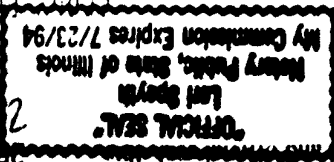 "OFFICIAL SEAL"
Lori Spoyth
Notary Public, State of Illinois
My Commission Expires 7/23/94
2